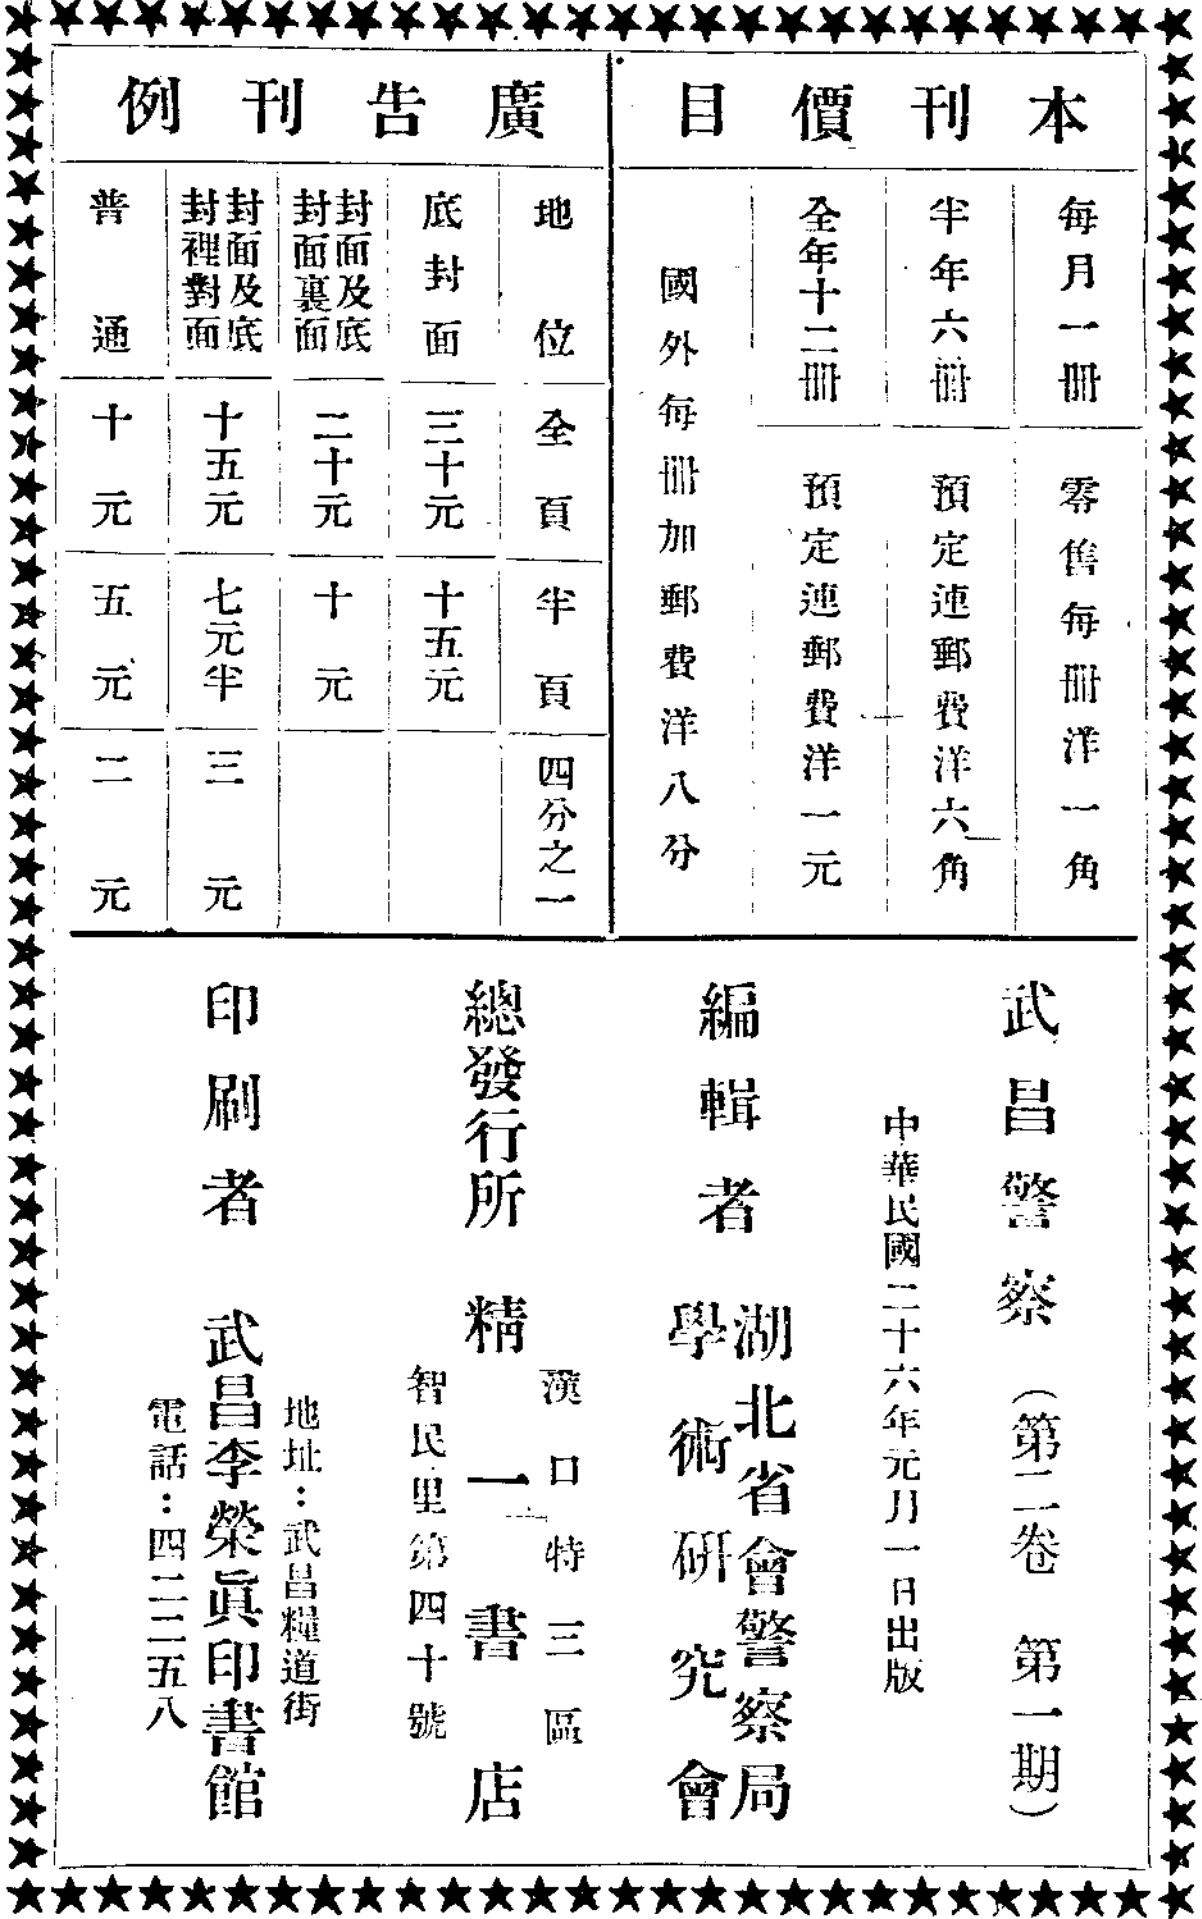 本刊價目
每月一冊 零售每冊洋一角
半年六冊 預定連郵費洋六角
全年十二冊 預定連郵費洋一元
國外每冊加郵費洋八分
廣告刊例
地位 全頁 半頁 四分之一
底封面 三十元 十五元
封面及底封面裏面 二十元 十元
封面及底封裡對面 十五元 七元半 三元
普通 十元 五元 二元
武昌警察（第二卷 第一期）
中華民國二十六年元月一日出版
編輯者 湖北省會警察局學術研究會
總發行所 精一書店
漢口特三區
智民里第四十號
印刷者 武昌李榮眞印書館
地址：武昌糧道街
電話：四二二五八